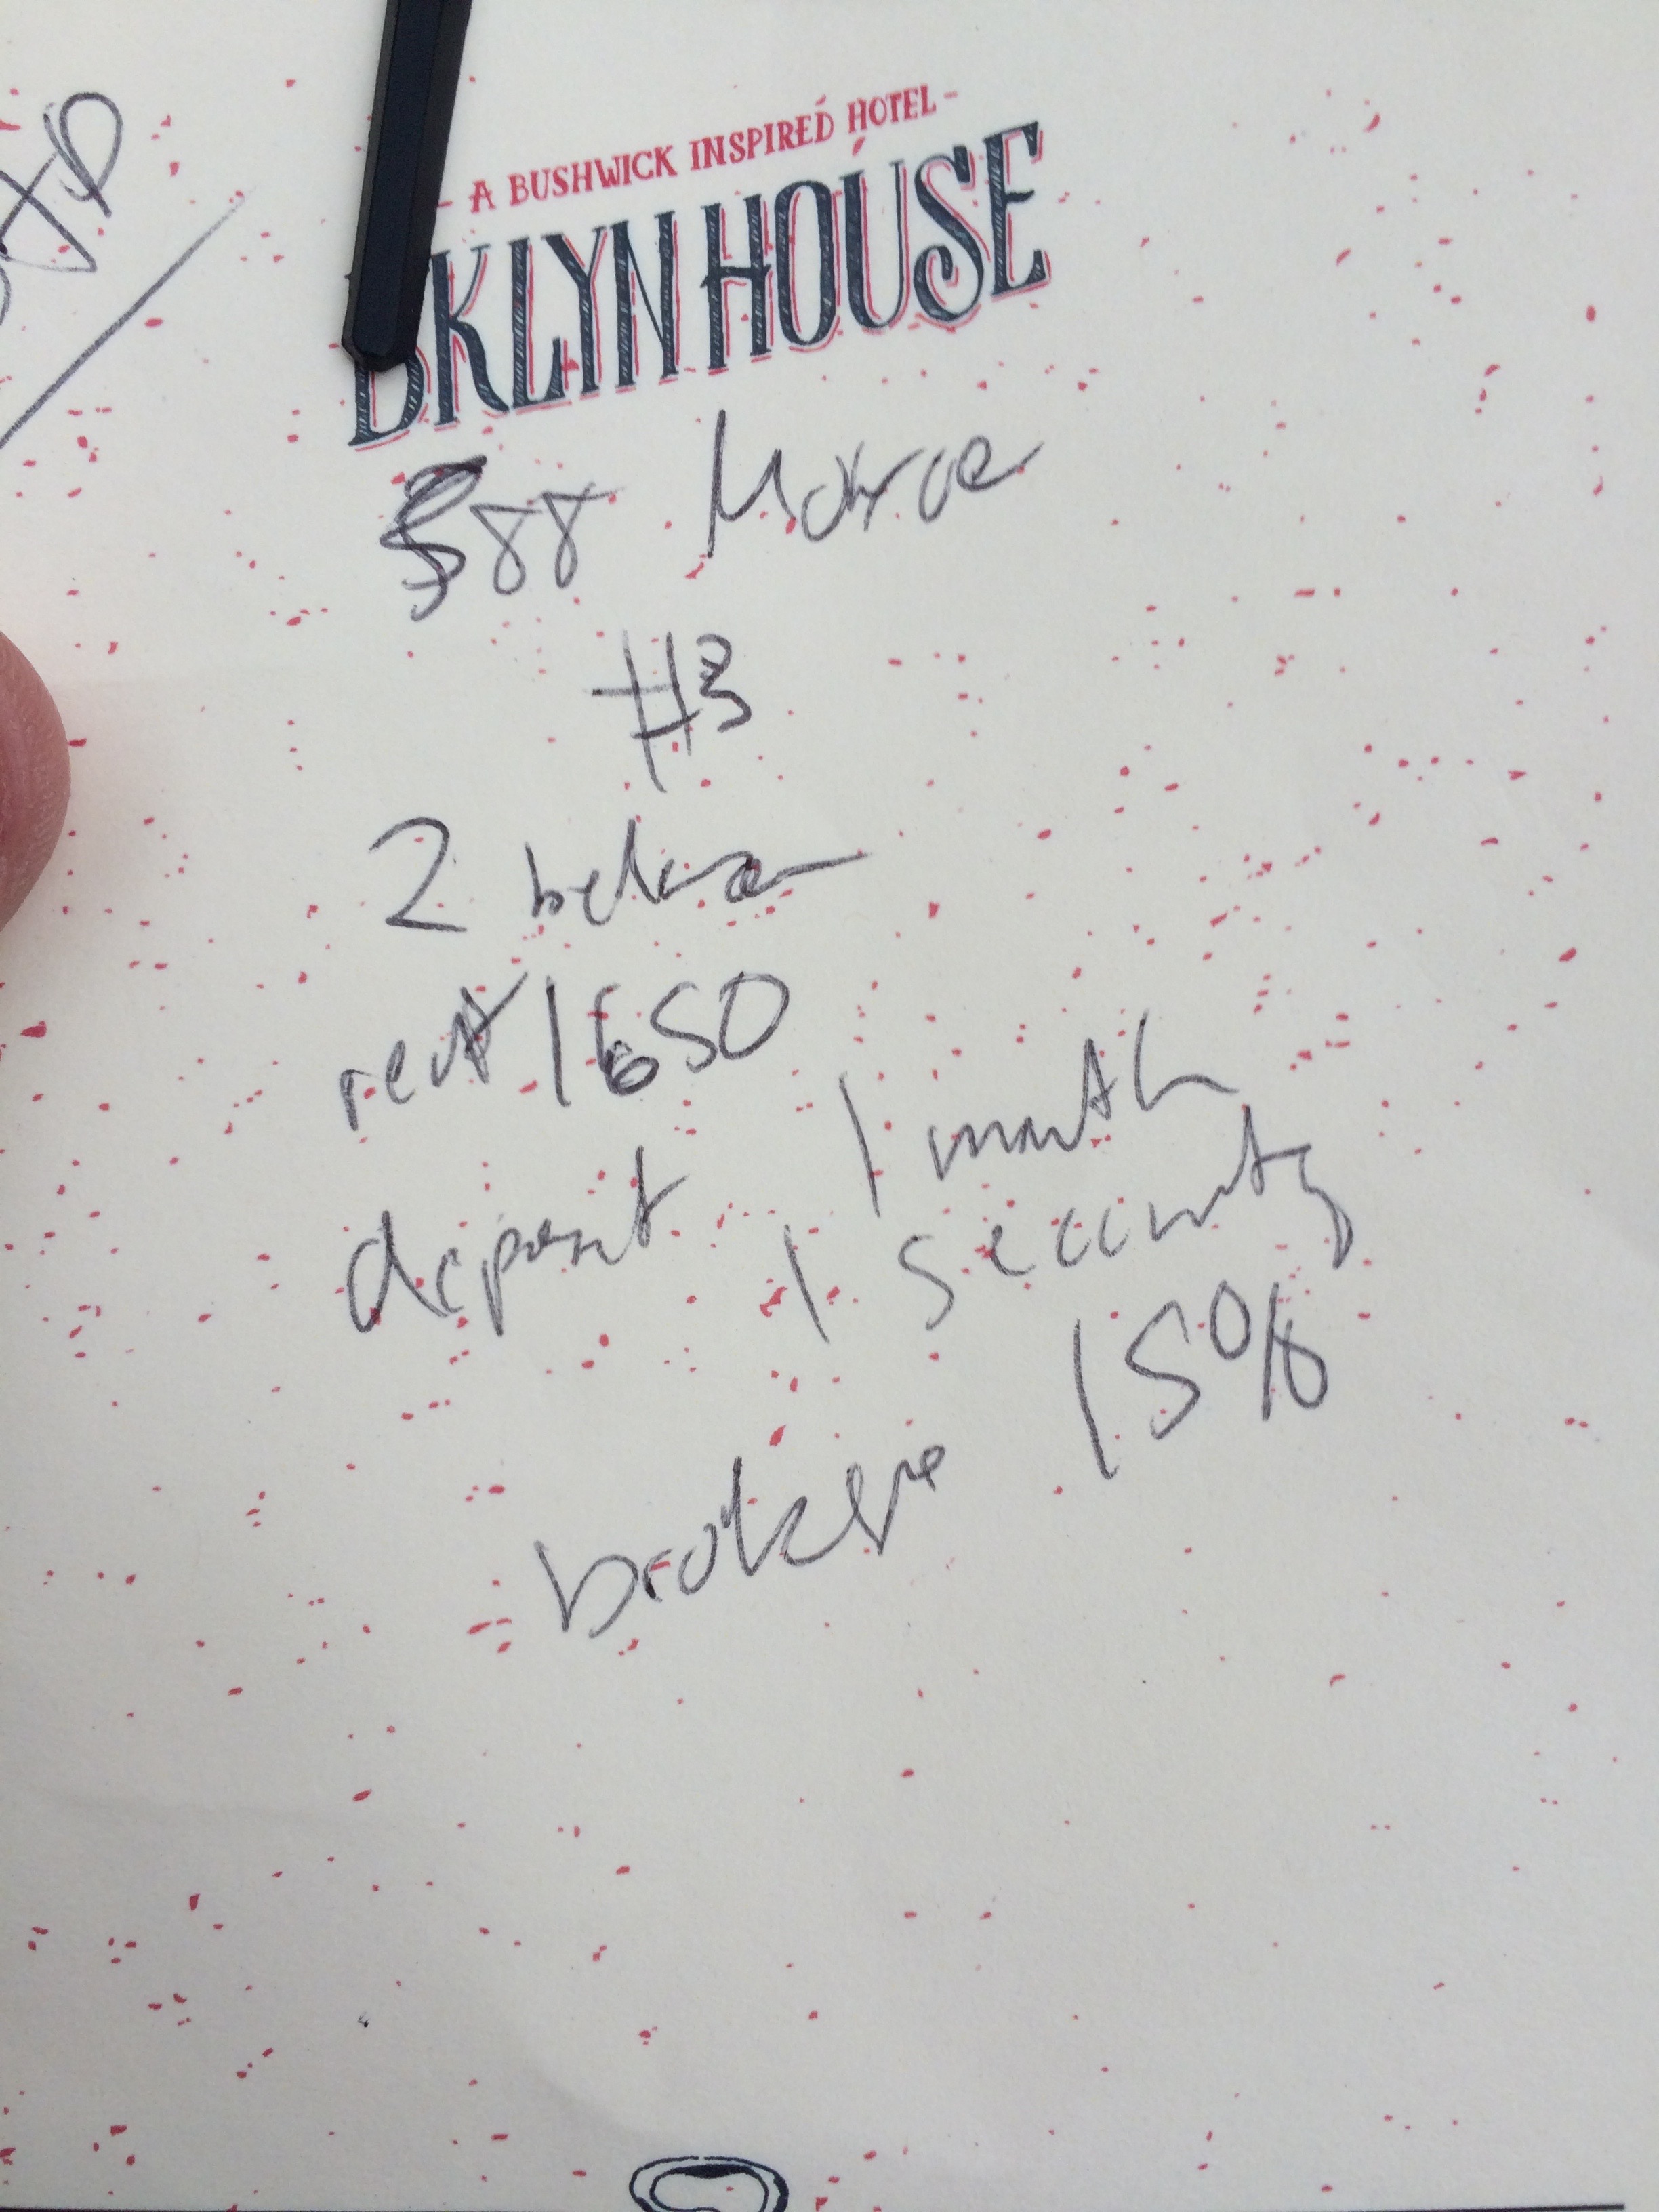 - A BUSHWICK INSPIRED HOTEL -
BKLYN HOUSE
588 Monroe
#3
2 bedroom
rent 1650
deposit 1 month
1 security
broker 15%